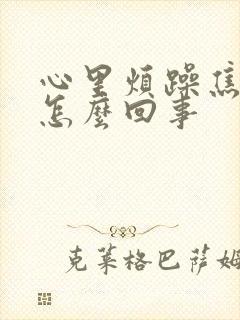 心里煩躁焦
怎麼回事
克莱格巴萨姆